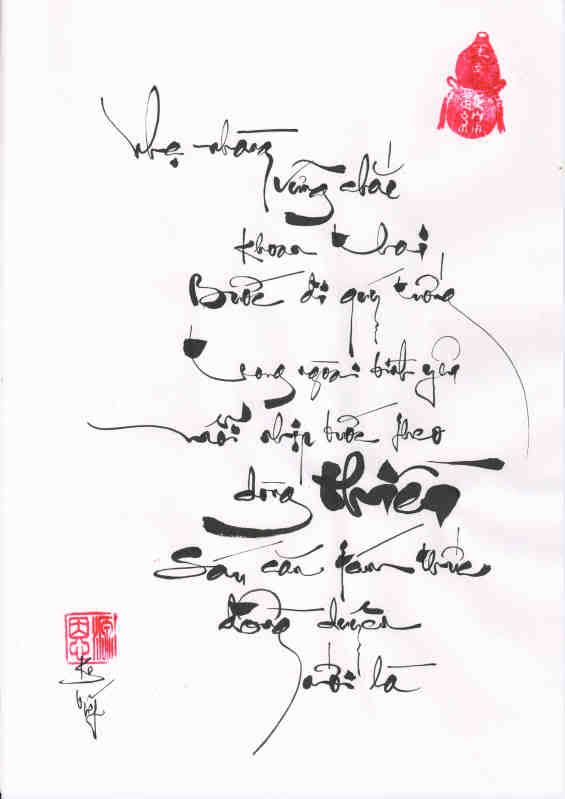 Nhẹ nhàng
vững chắc
khoan thai
Bước đi quý tướng
trong ngoài bình yên
mỗi nhịp bước theo
dòng thiền
Sáu căn tám thức
đồng duyên
mỗi là